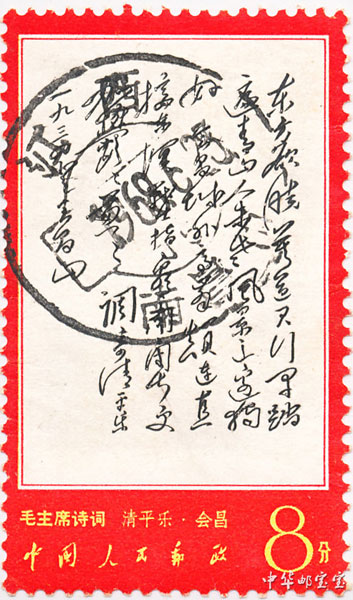 东方欲晓莫道君行早踏
遍青山人未老风景这边独
好会昌城外高峰颠连直
接东溟战士指看南粤更
郁郁葱葱调寄清平乐
一九三四年
江西
1968
毛主席诗词 清平乐·会昌
中国人民邮政
8分
中华邮宝宝